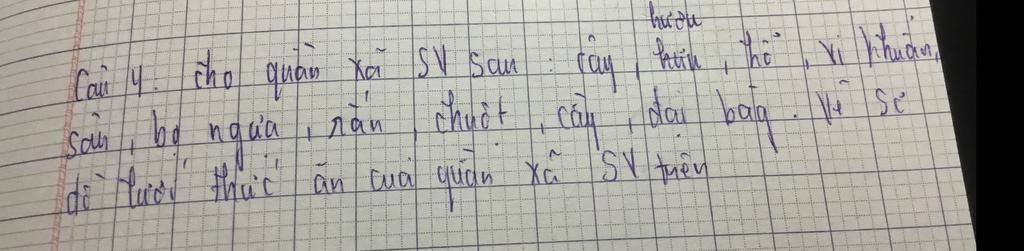 hươu
Câu 4. Cho quần xã SV sau : Cây, hổ, vi khuẩn,
sâu, bọ ngựa, rắn, chuột, cầy, đại bàg. Vẽ sơ
đồ lưới thức ăn của quần xã SV trên